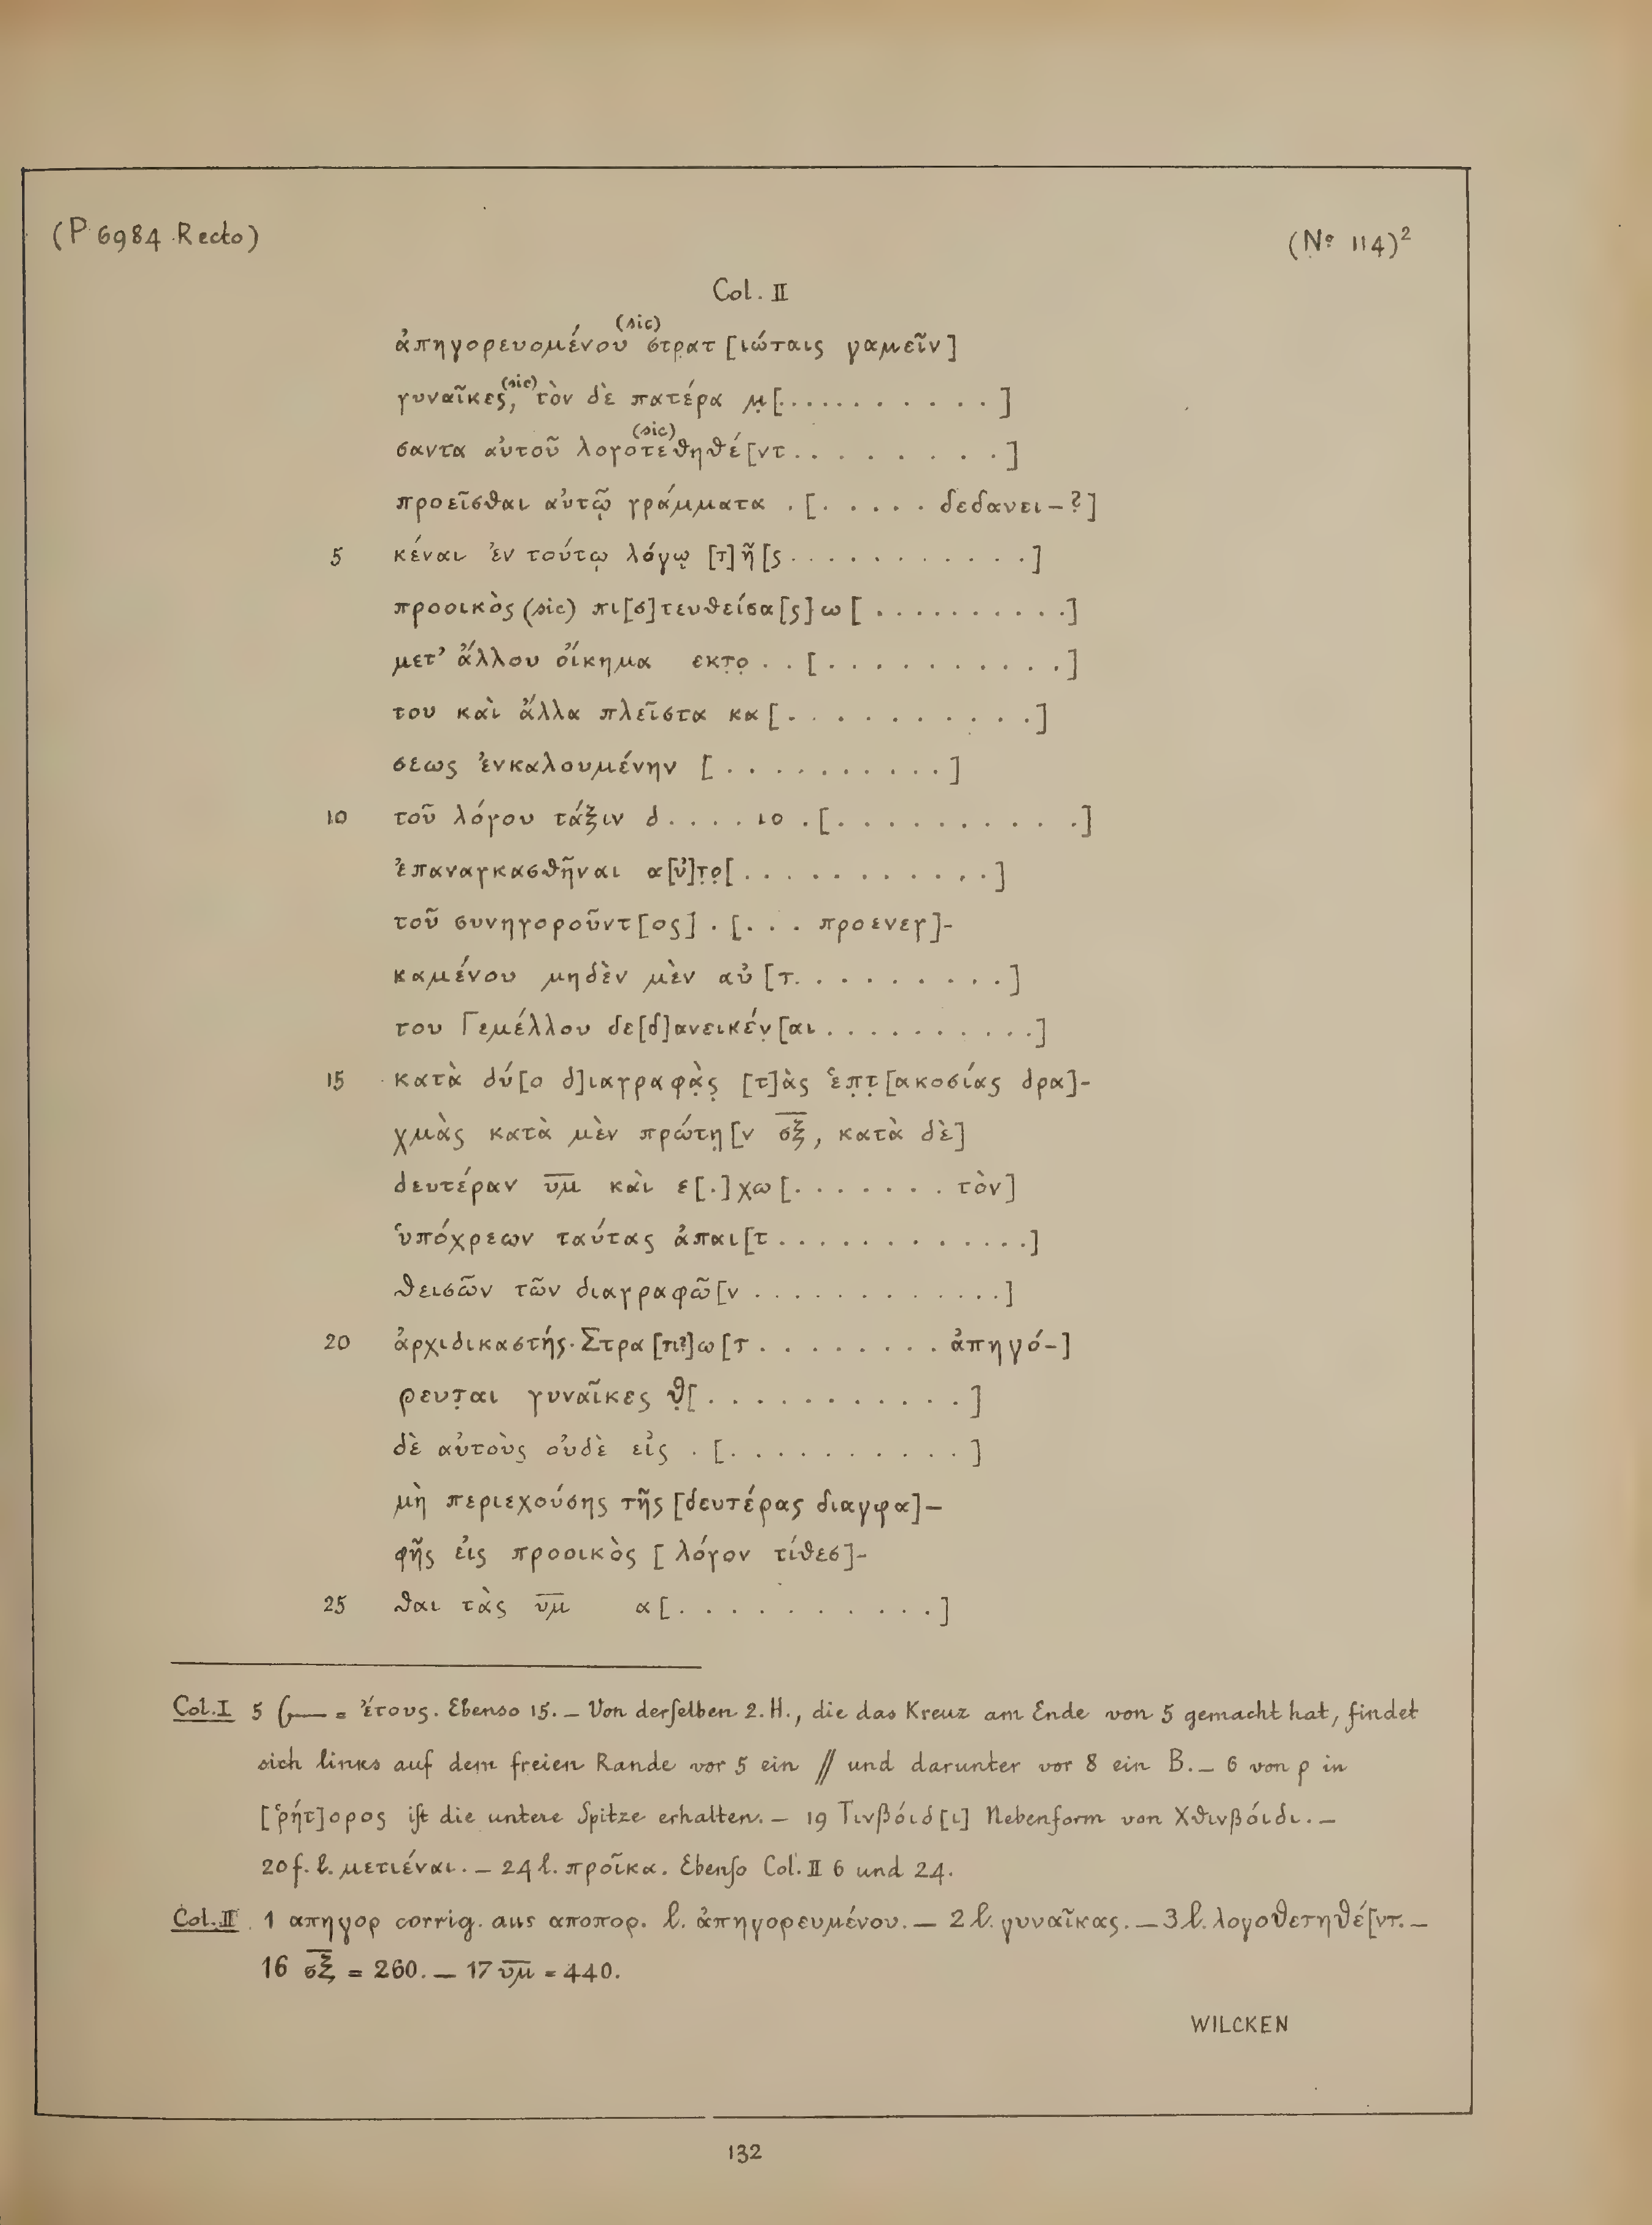 (P 6984 Recto)
(No 114)²
Col. II
(sic)
ἀπηγορευομένου στρατ[ιώταις γαμεῖν]
γυναῖκες, (sic) τὸν δὲ πατέρα μ̣[. . . . . . . . . . .]
(sic)
σαντα αὐτοῦ λογοτεθηθέ[ντ . . . . . . . . .]
προεῖσθαι αὐτῷ γράμματα . [. . . . . δεδανει-?]
5 κέναι ἐν τούτῳ λόγῳ [τ]ῆ[ς . . . . . . . . . . .]
προοικὸς (sic) πι[σ]τευθείσα[ς] ω[ . . . . . . . . . .]
μετ’ ἄλλου οἴκημα εκτ̣ο̣ . . [. . . . . . . . . . .]
του καὶ ἄλλα πλεῖστα κα[. . . . . . . . . . .]
σεως ἐνκαλουμένην [. . . . . . . . . .]
10 τοῦ λόγου τάξιν δ . . . . ιο . [. . . . . . . . . . .]
ἐπαναγκασθῆναι α[ὐ]τ̣ο̣[. . . . . . . . . . . .]
τοῦ συνηγοροῦντ[ος] . [. . . προενεγ]-
καμένου μηδὲν μὲν αὐ[τ. . . . . . . . . .]
του Γεμέλλου δε[δ]ανεικέν̣[αι . . . . . . . . . .]
15 κατὰ δύ[ο δ]ιαγραφὰ̣ς̣ [τ]ὰς ἑπ̣τ̣[ακοσίας δρα]-
χμὰς κατὰ μὲν πρώτη̣[ν σ̅ξ̅, κατὰ δὲ]
δευτέραν υ̅μ̅ καὶ ε[.]χω[. . . . . . . τὸν]
ὑπόχρεων ταύτας ἀπαι[τ . . . . . . . . . . . .]
θεισῶν τῶν διαγραφῶ[ν . . . . . . . . . . . .]
20 ἀρχιδικαστής· Στρα[τι?]ω[τ . . . . . . . . ἀπηγό-]
ρευτ̣αι γυναῖκες θ̣[. . . . . . . . . . .]
δὲ αὐτοὺς οὐδὲ εἰς . [. . . . . . . . . . .]
μὴ περιεχούσης τῆς [δευτέρας διαγρα]-
φῆς εἰς προοικὸς [λόγον τίθεσ]-
25 θαι τὰς υ̅μ̅ α[. . . . . . . . . . .]
Col. I 5 = ἔτους. Ebenso 15. — Von derselben 2. H., die das Kreuz am Ende von 5 gemacht hat, findet
sich links auf dem freien Rande vor 5 ein // und darunter vor 8 ein B. — 6 von ρ in
[ῥήτ]ορος ist die untere Spitze erhalten. — 19 Τινβόιδ[ι] Nebenform von Χθινβόιδι. —
20 f. l. μετιέναι. — 24 l. προῖκα. Ebenso Col. II 6 und 24.
Col. II. 1 απηγορ corrig. aus αποπορ. l. ἀπηγορευμένου. — 2 l. γυναῖκας. — 3 l. λογοθετηθέ[ντ. —
16 σ̅ξ̅ = 260. — 17 υ̅μ̅ = 440.
WILCKEN
132